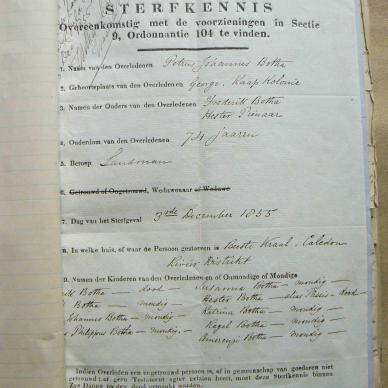 STERFKENNIS
Overeenkomstig met de voorzieningen in Sectie
9, Ordonnantie 104 te vinden.
1. Naam van den Overledenen Petrus Johannes Botha
2. Geboorteplaats van den Overledenen George, Kaap Kolonie
3. Namen der Ouders van den Overledenen Frederik Botha
Hester Pienaar
4. Ouderdom van den Overledenen 74 jaaren
5. Beroep Landman
6. Getrouwd of Ongetrouwd, Weduwenaar of Weduwe
7. Dag van het Sterfgeval 3de December 1855
8. In welke huis, of waar de Persoon gestorven is Kraal, Caledon
Rivier Distrikt
9. Namen der Kinderen van den Overledenen of Onmondige of Mondige
Botha — dood — Susanna Botha — mondig —
Botha — mondig — Hester Botha — alias — dood —
Johannes Botha — mondig — Katrina Botha — mondig —
Philippus Botha — mondig — Ragel Botha — mondig —
Botha — mondig —
Indien Overleden een ongetrouwd persoon is, of in gemeenschap van goederen niet
getrouwd; of geen Testament agter gelaten heeft, moet deze Sterfkennis binnen